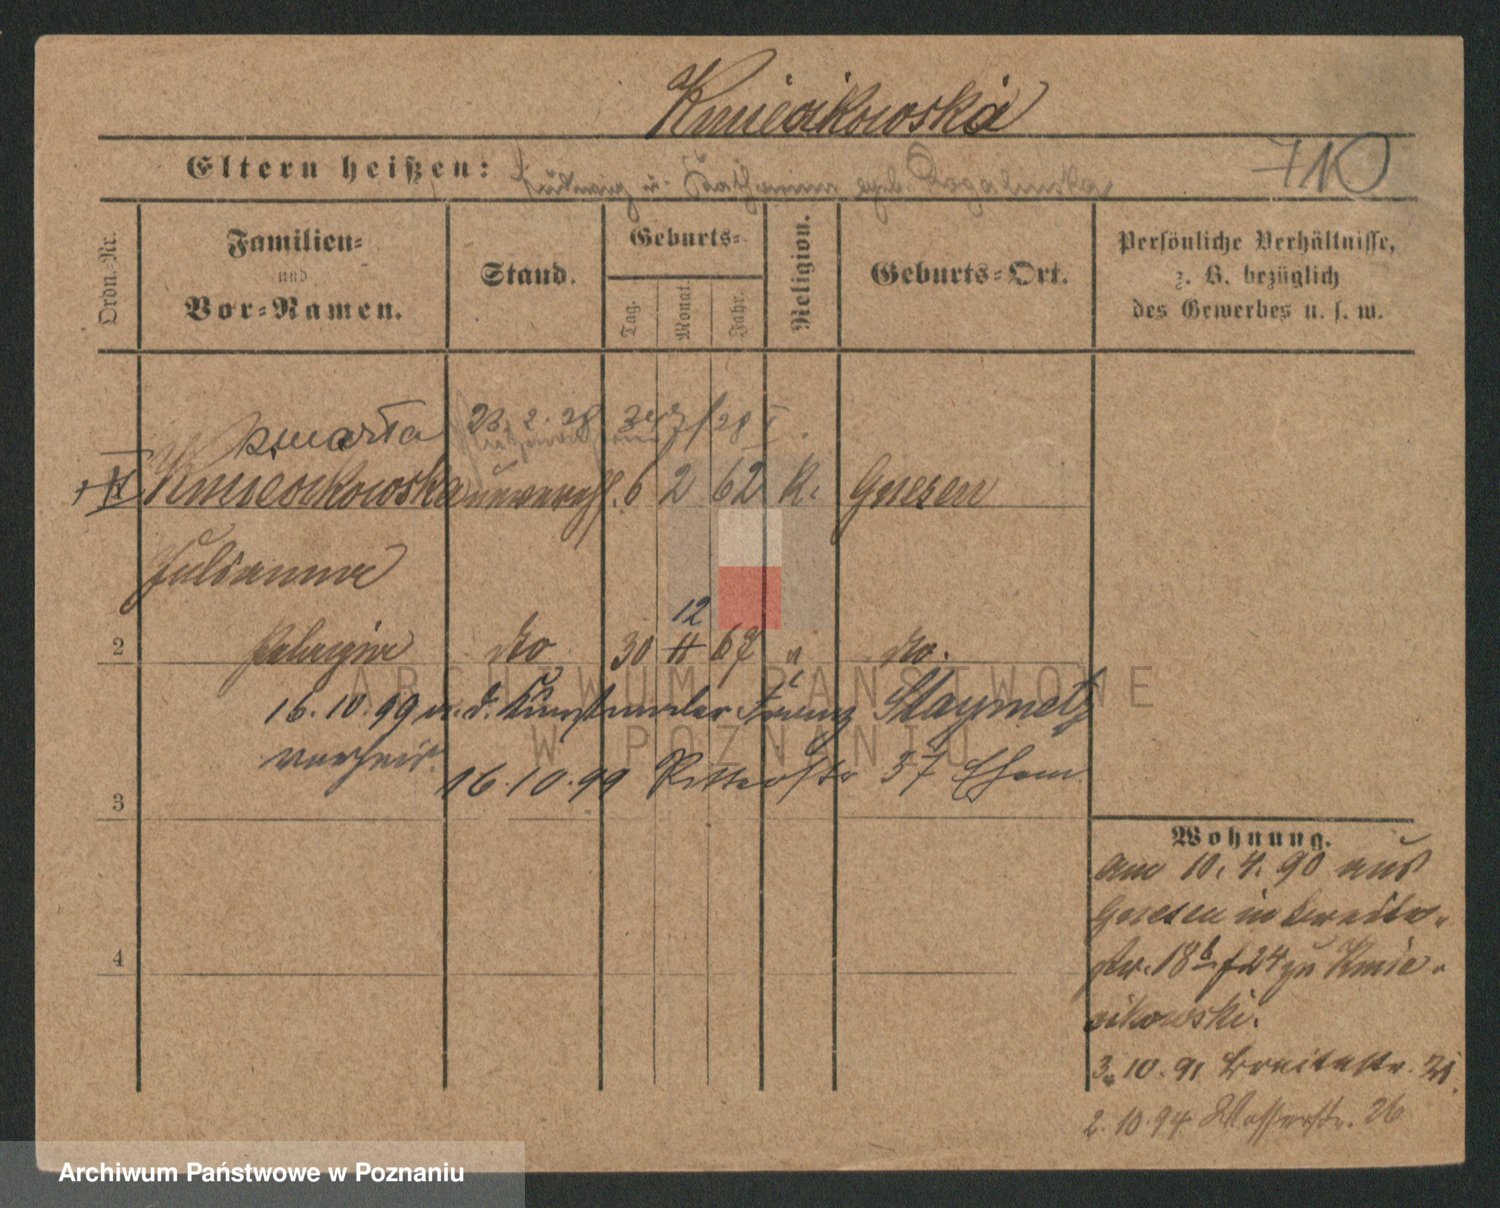 Kmiecikowska
Eltern heißen: Ludwig u. Katharina geb. Rogalinska
710
Ordn.-Nr.
Familien-
und
Vor-Namen.
Stand.
Geburts-
Tag.
Monat.
Jahr.
Religion.
Geburts-Ort.
Persönliche Verhältnisse,
z. B. bezüglich
des Gewerbes u. s. w.
zmarła 23. 2. 28
Kmiecikowska unvereh. 6 2 62 K. Gnesen
Julianna
12
2 Pelagia do 30 11 67 " do.
16. 10. 99 m. d. Kunstmaler Franz
verheir.
16. 10. 99 Ritterstr 37 Ehem
3
4
Wohnung.
Am 10. 4. 90 aus
Gnesen in Breite-
str. 18 b f 24 zu Kmie-
cikowski.
3. 10. 91 Breitestr. 21.
2. 10. 94 Wasserstr. 26
ARCHIWUM PAŃSTWOWE
W POZNANIU
Archiwum Państwowe w Poznaniu